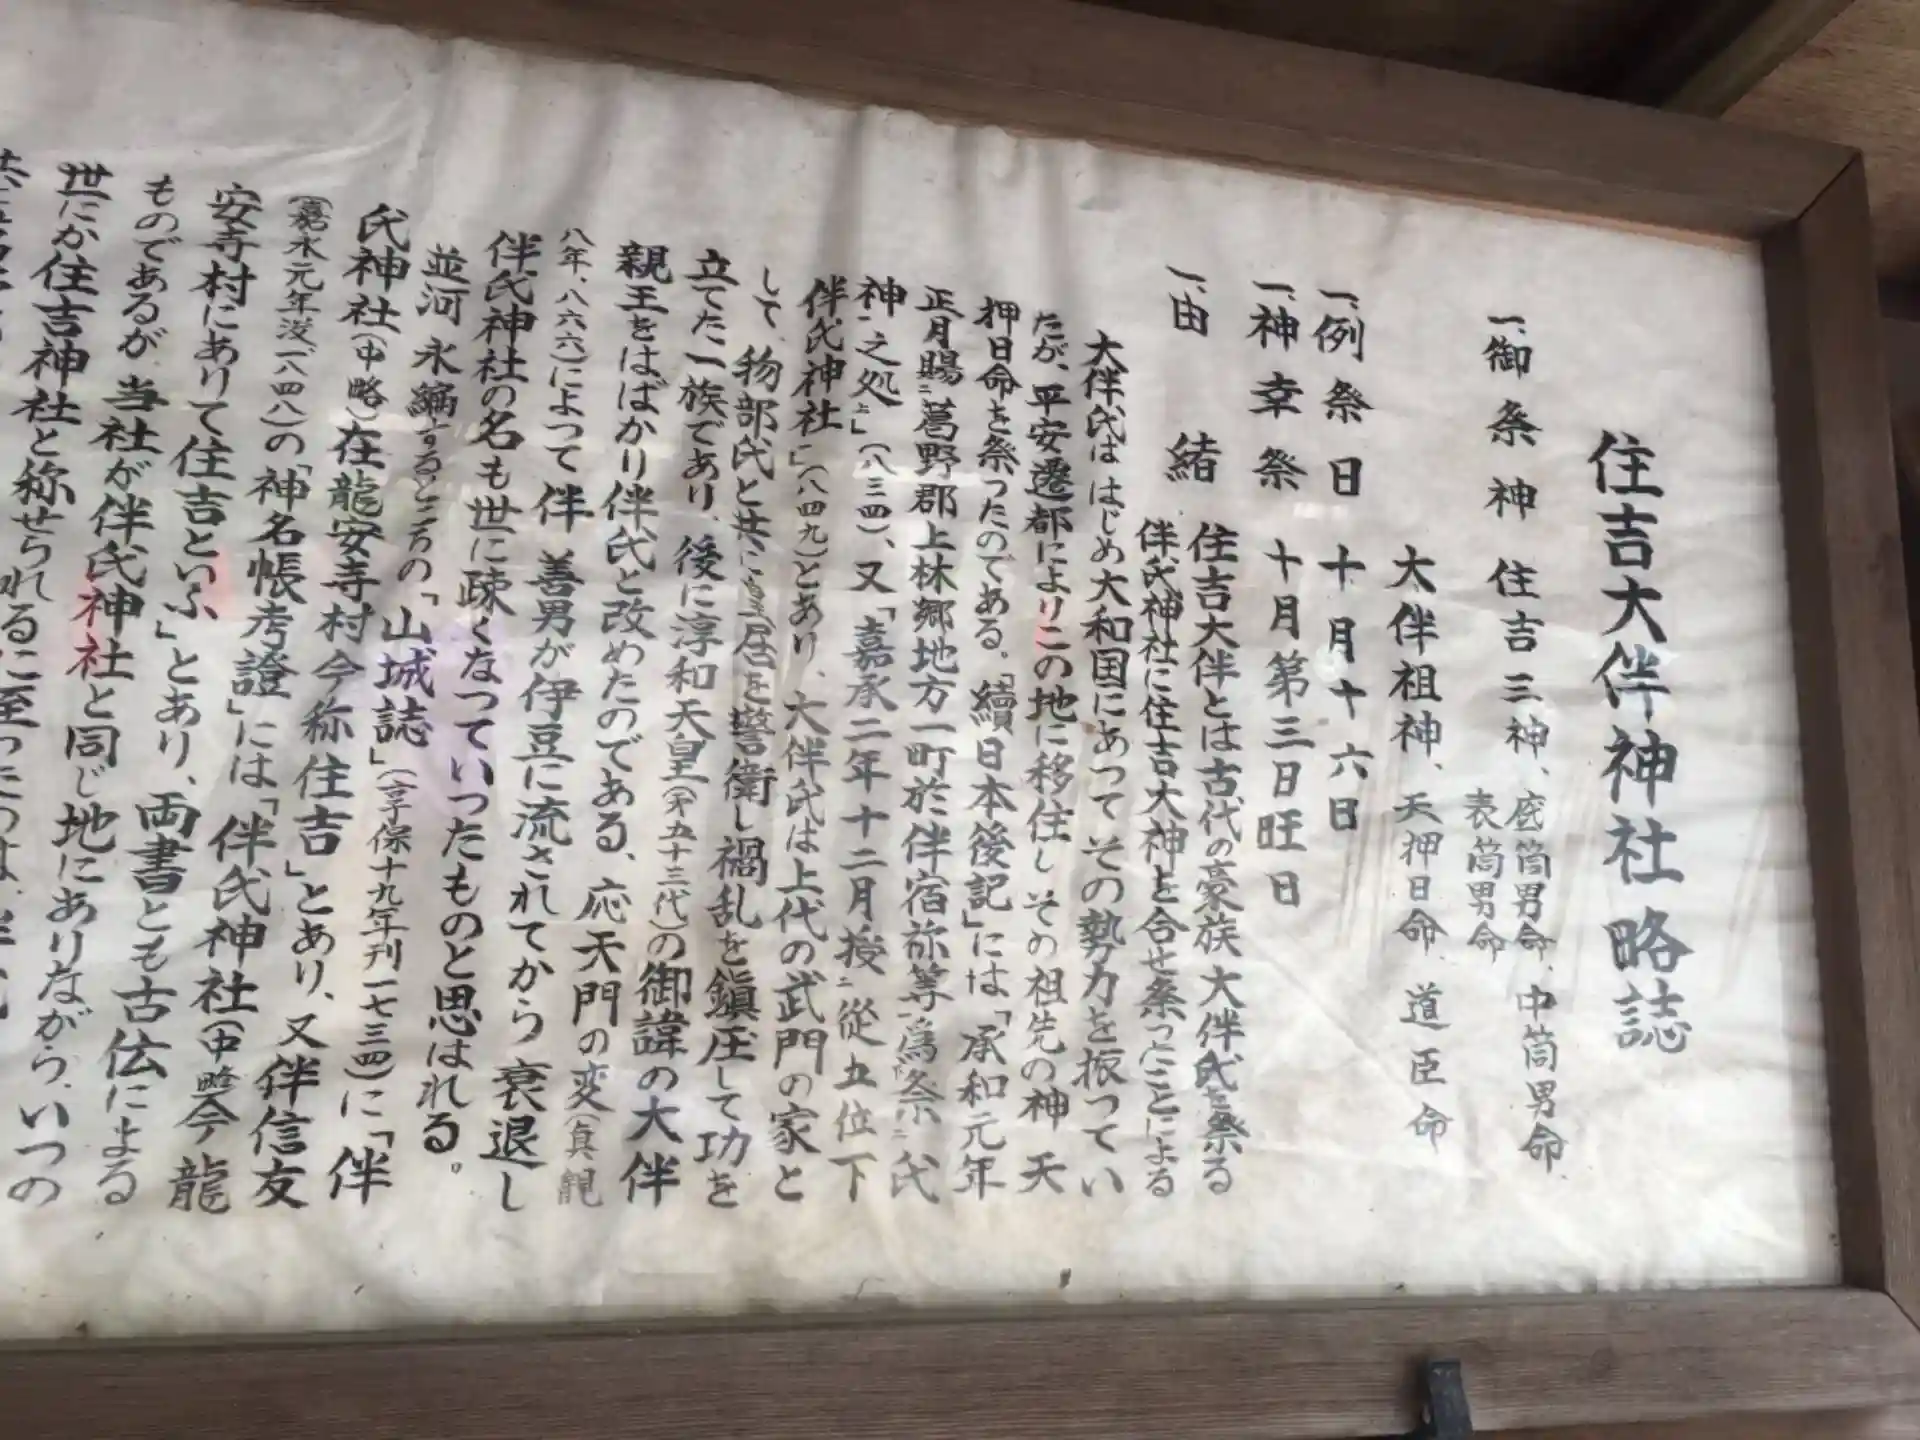 住吉大伴神社略誌
一、御祭神 住吉三神、底筒男命、中筒男命
表筒男命
大伴祖神、天押日命、道臣命
一、例祭日 十月十六日
一、神幸祭 十月第三日旺日
一、由緒 住吉大伴とは古代の豪族大伴氏を祭る
伴氏神社に住吉大神を合せ祭ったことによる
大伴氏ははじめ大和国にあってその勢力を振ってい
たが、平安遷都によりこの地に移住しその祖先の神 天
押日命を祭ったのである。「續日本後記」には、「承和元年
正月賜ニ葛野郡上林郷地方一町於伴宿祢等、為祭ニ氏
神一之処上」(八三四)、又「嘉承二年十二月授ニ從五位下
伴氏神社一」(八四九)とあり、大伴氏は上代の武門の家と
して、物部氏と共に皇居を警衛し禍乱を鎭圧して功を
立てた一族であり、後に淳和天皇(才五十三代)の御諱の大伴
親王をはばかり伴氏と改めたのである、応天門の変(貞観
八年、八六六)によって伴 善男が伊豆に流されてから衰退し
伴氏神社の名も世に疎くなつていったものと思はれる。
並河 永編するところの「山城誌」(享保十九年刊一七三四)に「伴
氏神社(中略)在龍安寺村今称住吉」とあり、又伴信友
(嘉永元年没一八四八)の「神名帳考證」には「伴氏神社(中略)今龍
安寺村にありて住吉といふ」とあり、両書とも古伝による
ものであるが、当社が伴氏神社と同じ地にありながら、いつの
世にか住吉神社と称せられるに至ったのは、